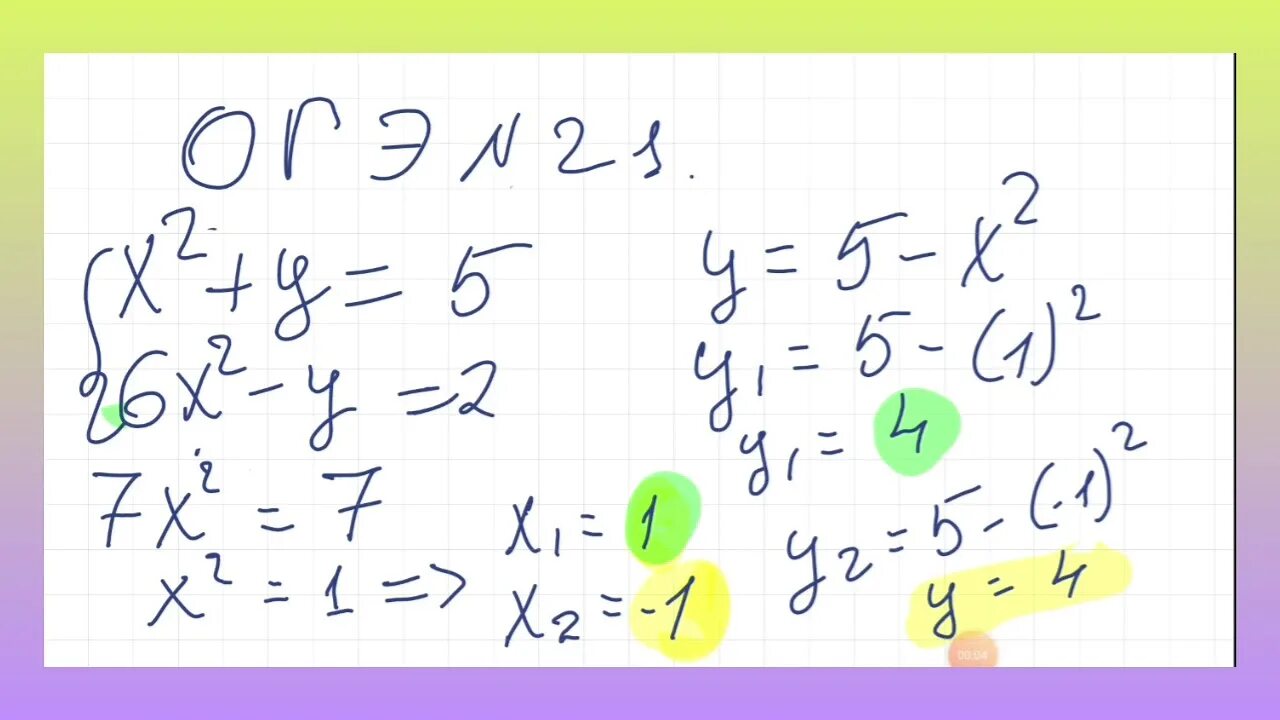 ОГЭ N 21.
x² + y = 5
6x² - y = 2
7x² = 7
x² = 1 =>
x₁ = 1
x₂ = -1
y = 5 - x²
y₁ = 5 - (1)²
y₁ = 4
y₂ = 5 - (-1)²
y = 4
00:04